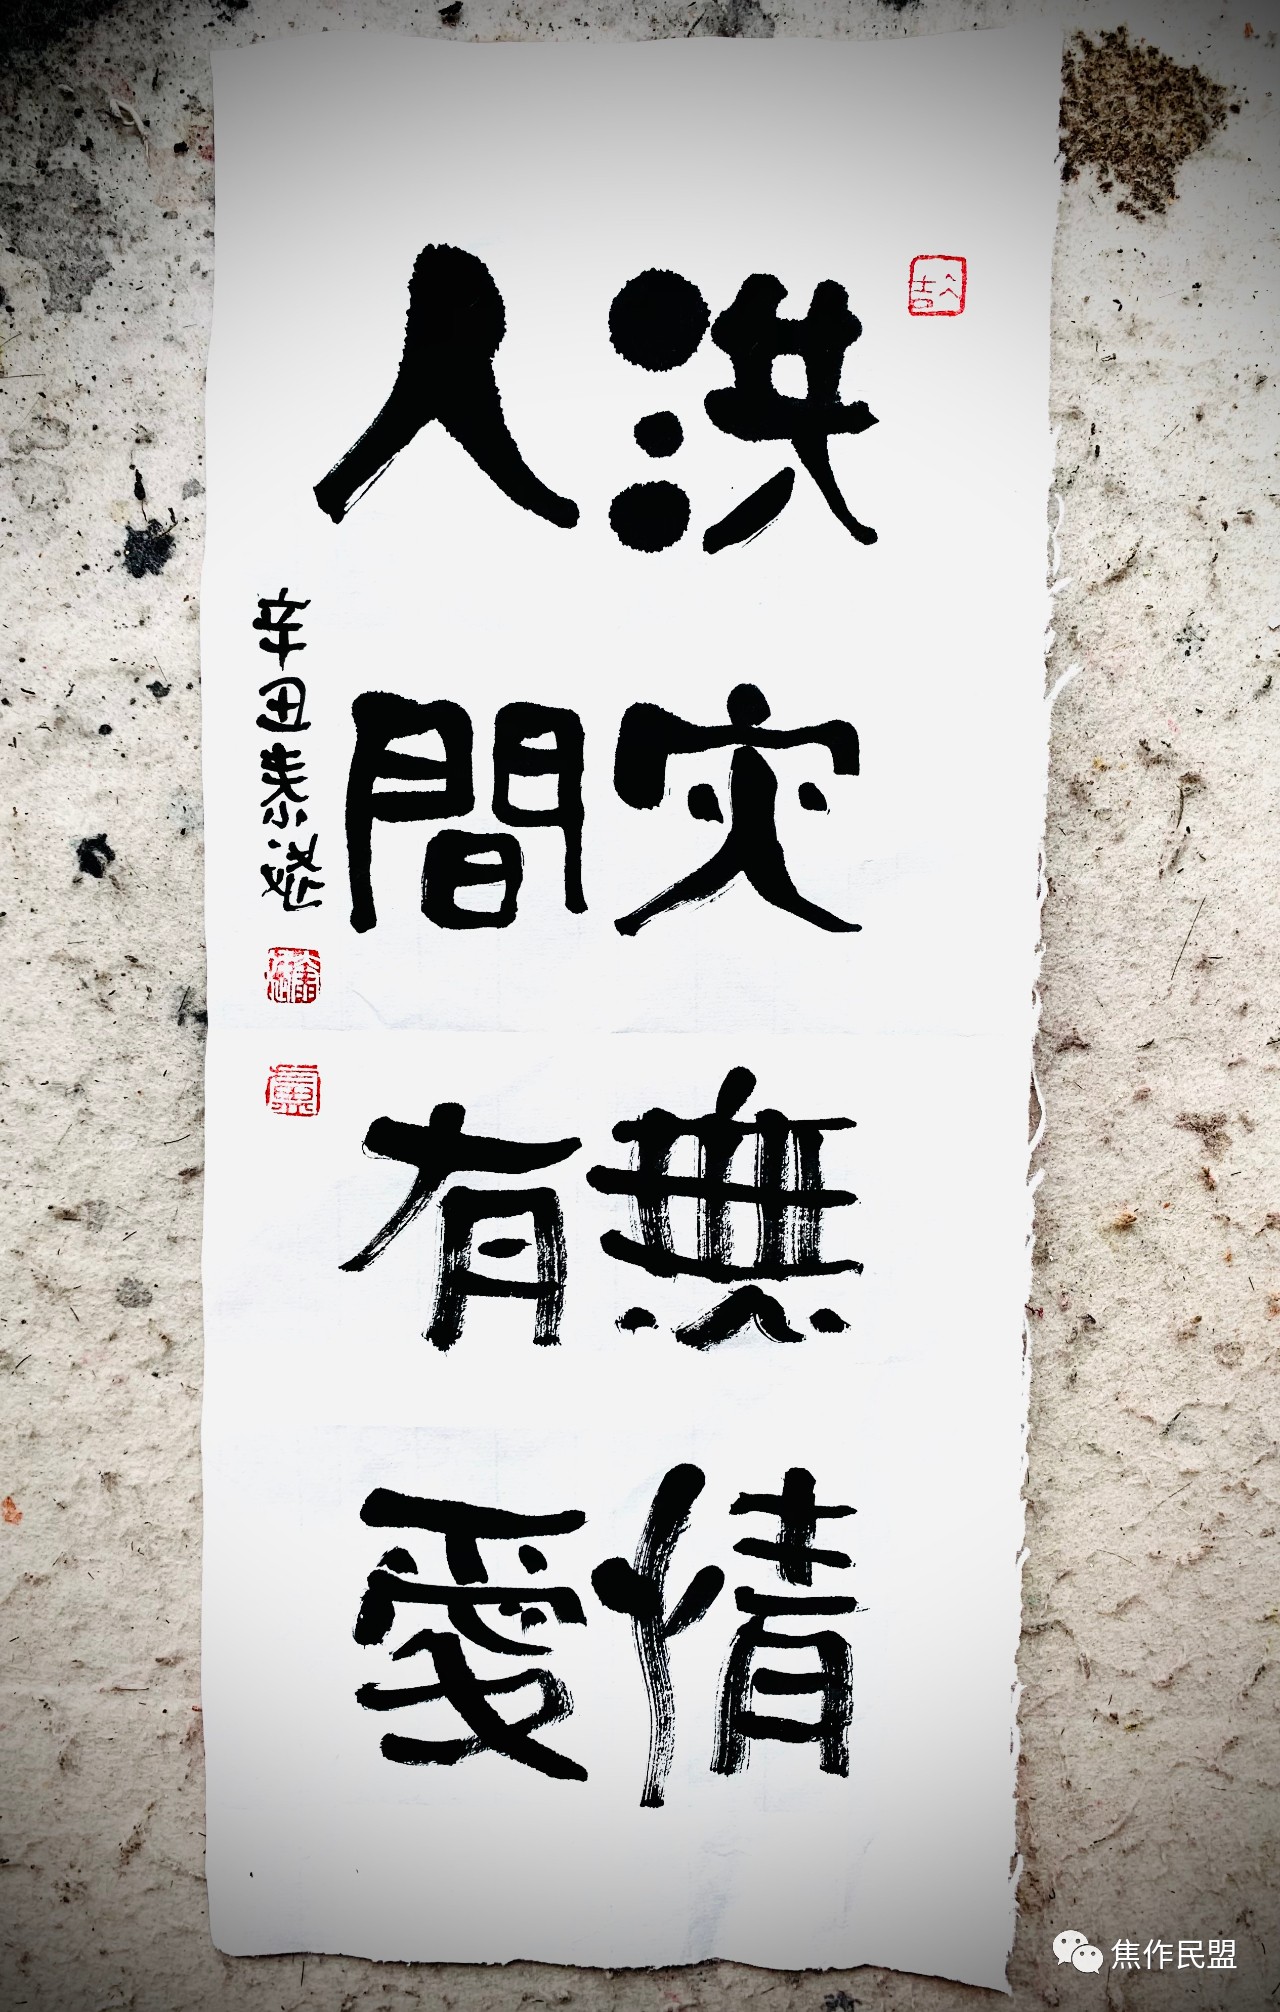 洪灾無情
人間有愛
辛丑泰
焦作民盟